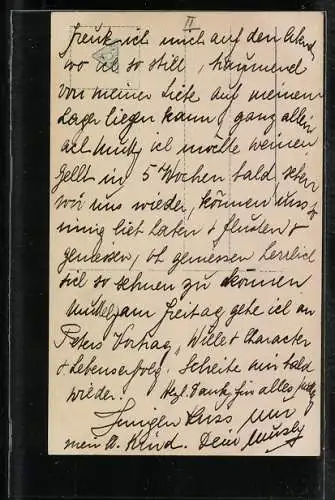 II
freue ich mich auf den Abend
wo ich so still, träumend
von meiner Liebe auf meinem
Lager liegen kann, ganz allein
ach Mutz ich möchte weinen
Gellt in 5 Wochen bald sehen
wir uns wieder, können uns so
innig lieb haben + flüstern +
geniessen, oh geniessen herrlich
sich so sehnen zu können
am Freitag gehe ich in
Peters Vortrag, Wille + Character
+ Lebenserfolg. Schreibe mir bald
wieder. Hzl. Dank für alles
Innigen Kuss nur
mein Kind. Dein